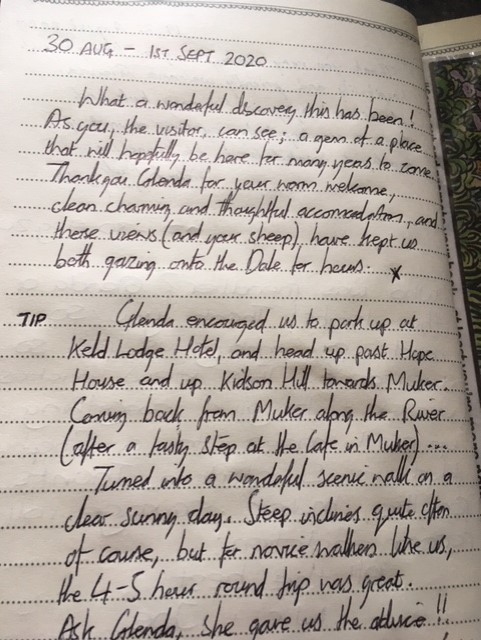 30 AUG – 1ST SEPT 2020
What a wonderful discovery this has been!
As you, the visitor, can see; a gem of a place
that will hopefully be here for many years to come.
Thankyou Glenda for your warm welcome,
clean charming and thoughtful accomodation, and
these views (and your sheep), have kept us
both gazing onto the Dale for hours. x
TIP Glenda encouraged us to park up at
Keld Lodge Hotel, and head up past Hope
House and up Kidson Hill towards Muker.
Coming back from Muker along the River
(after a tasty stop at the Cafe in Muker)...
Turned into a wonderful scenic walk on a
clear sunny day. Steep inclines quite often
of course, but for novice walkers like us,
the 4-5 hour round trip was great.
Ask Glenda, she gave us the advice!!